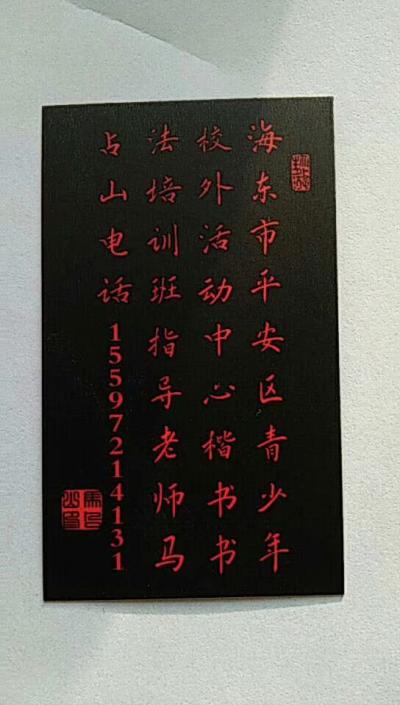 海东市平安区青少年
校外活动中心楷书书
法培训班指导老师马
占山电话15597214131